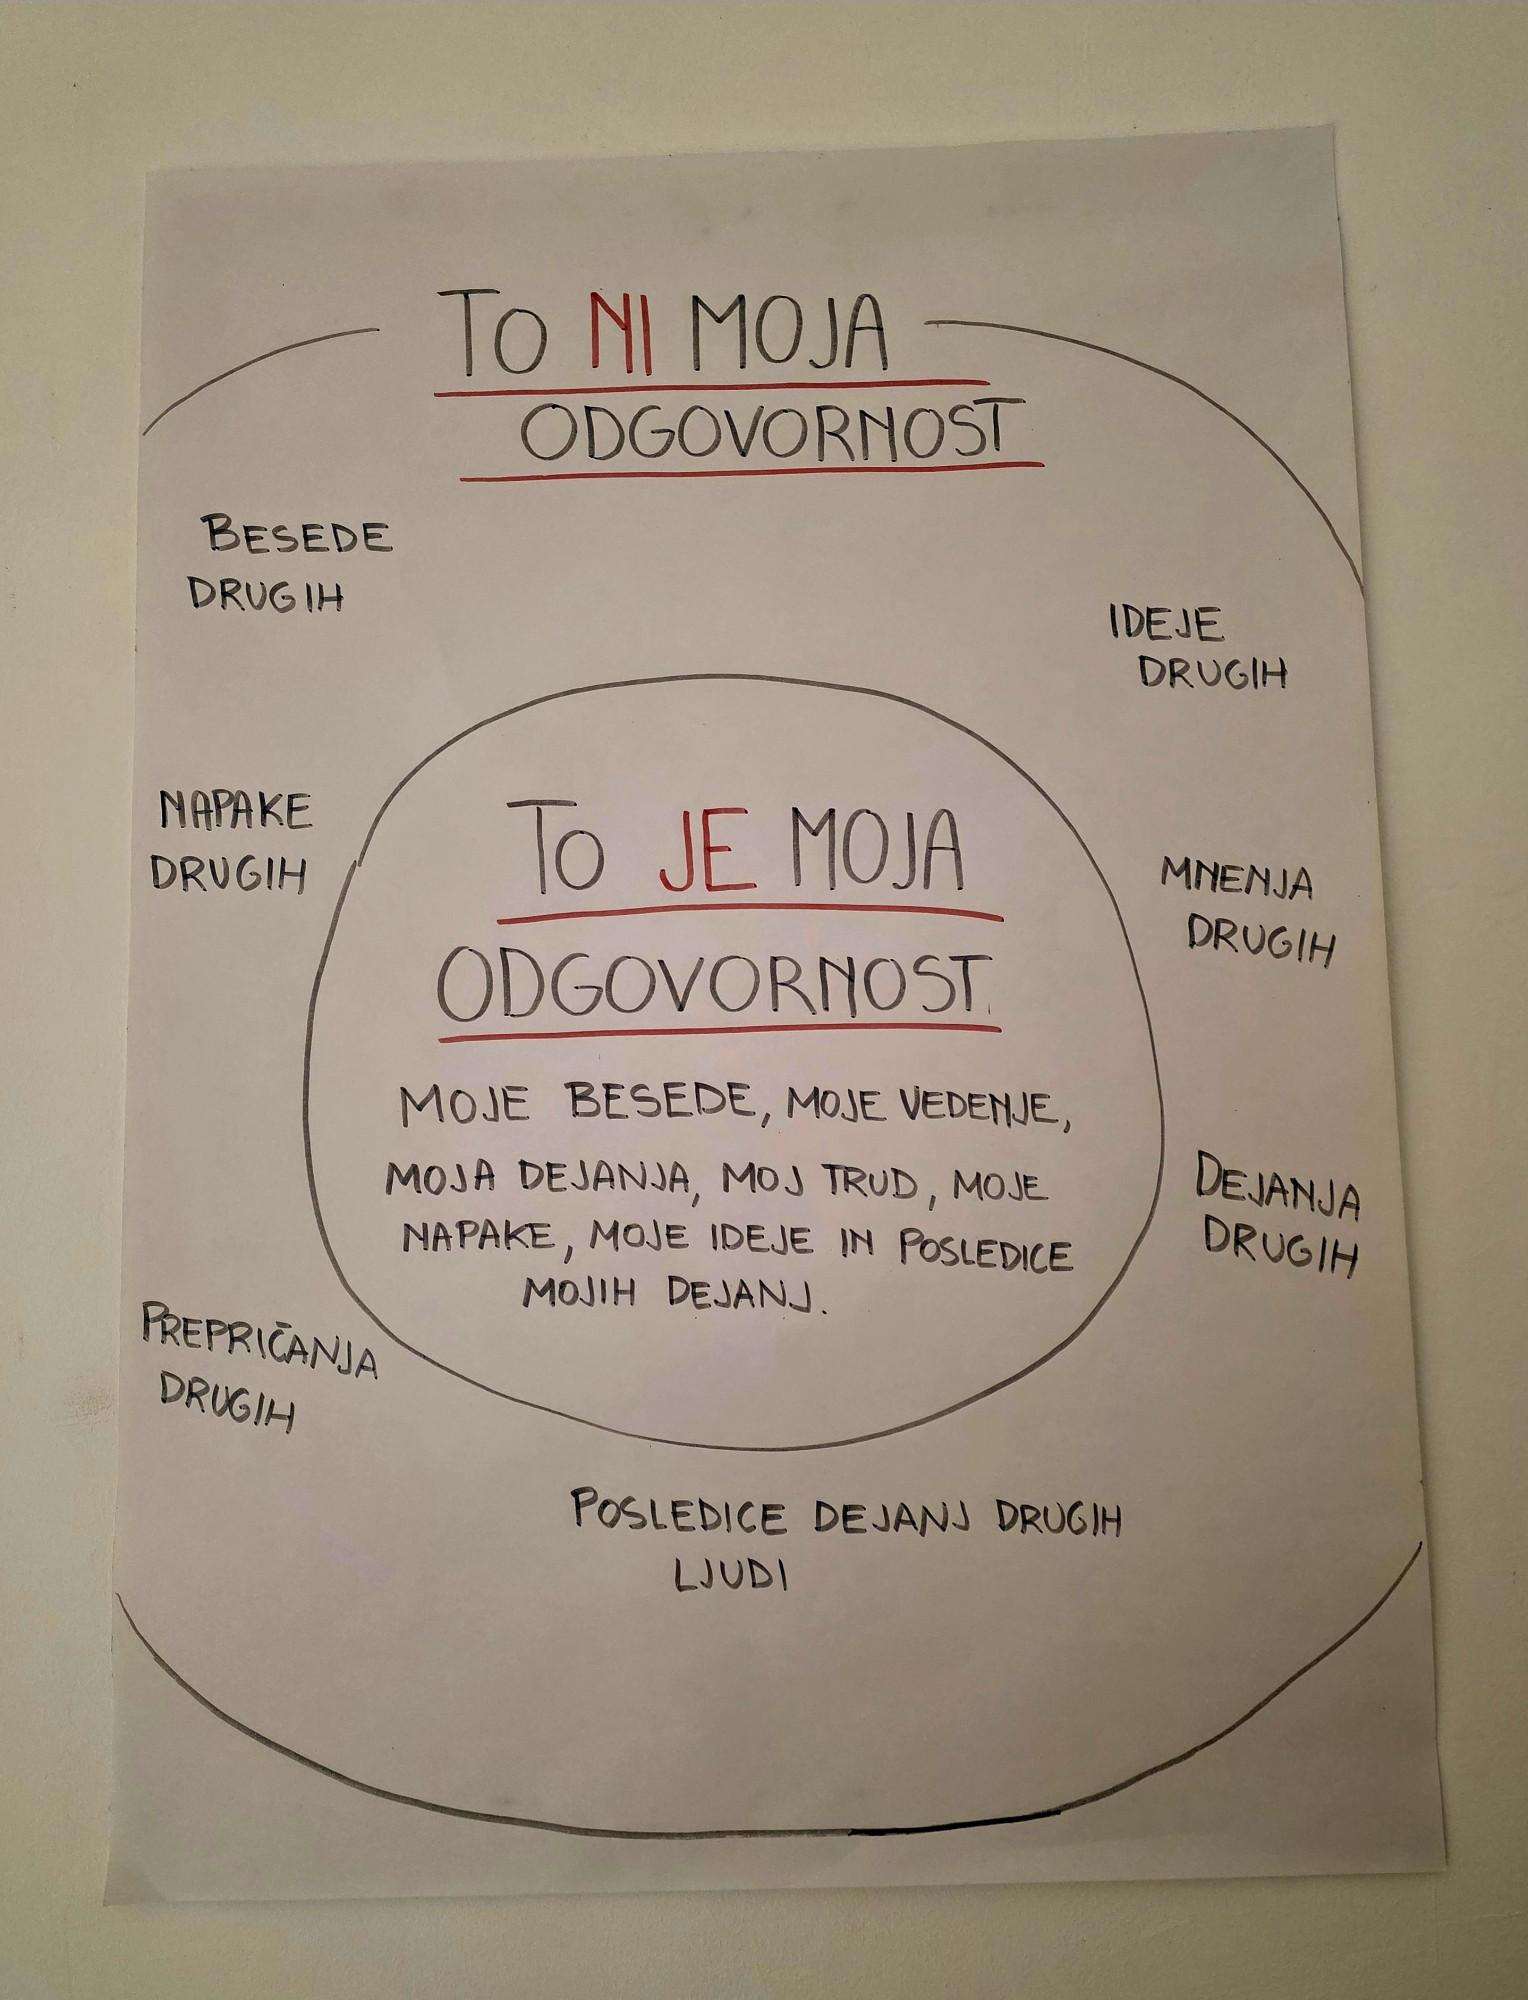 TO NI MOJA
ODGOVORNOST
BESEDE
DRUGIH
IDEJE
DRUGIH
NAPAKE
DRUGIH
MNENJA
DRUGIH
TO JE MOJA
ODGOVORNOST.
MOJE BESEDE, MOJE VEDENJE,
MOJA DEJANJA, MOJ TRUD, MOJE
NAPAKE, MOJE IDEJE IN POSLEDICE
MOJIH DEJANJ.
DEJANJA
DRUGIH
PREPRIČANJA
DRUGIH
POSLEDICE DEJANJ DRUGIH
LJUDI